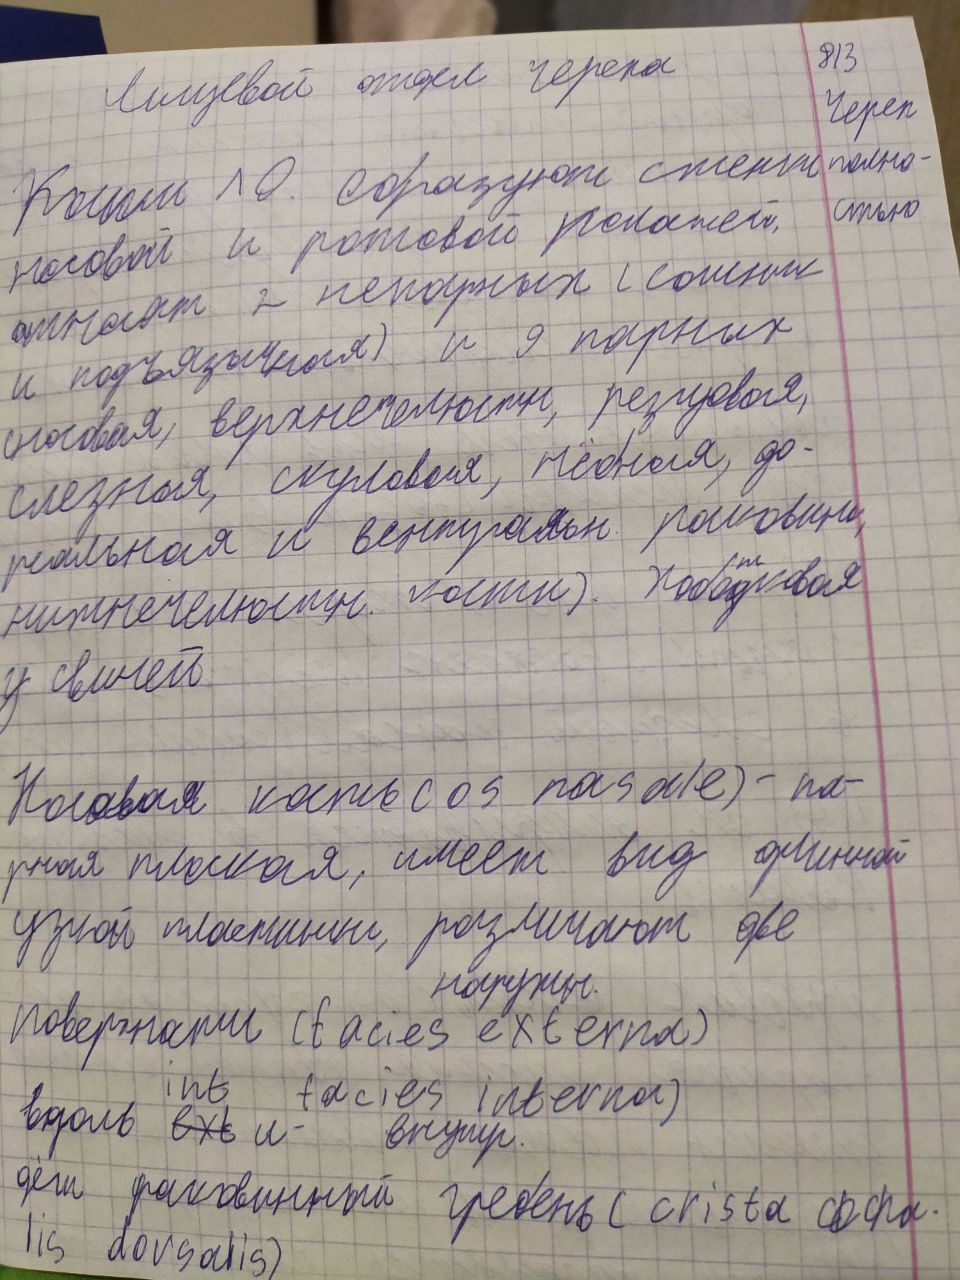 Лицевой отдел черепа
Кости ЛО. образуют стенки
носовой и ротовой полостей,
относят 2 непарных (сошник
и подъязычная) и 9 парных
(носовая, верхнечелюстн, резцовая,
слезная, скуловая, нёбная, до-
рсальная и вентральн. раковины,
нижнечелюстн. кости). Хоботковая
у свиней
Носовая кость (os nasale) - па-
рная плоская, имеет вид длинной
узкой пластинки, различают две
наружн.
поверхности (facies externa)
int facies interna)
вдоль ext и- внутр.
дёт раковинный гребень (crista
lis dorsalis)
д/з
Череп
полно-
стью